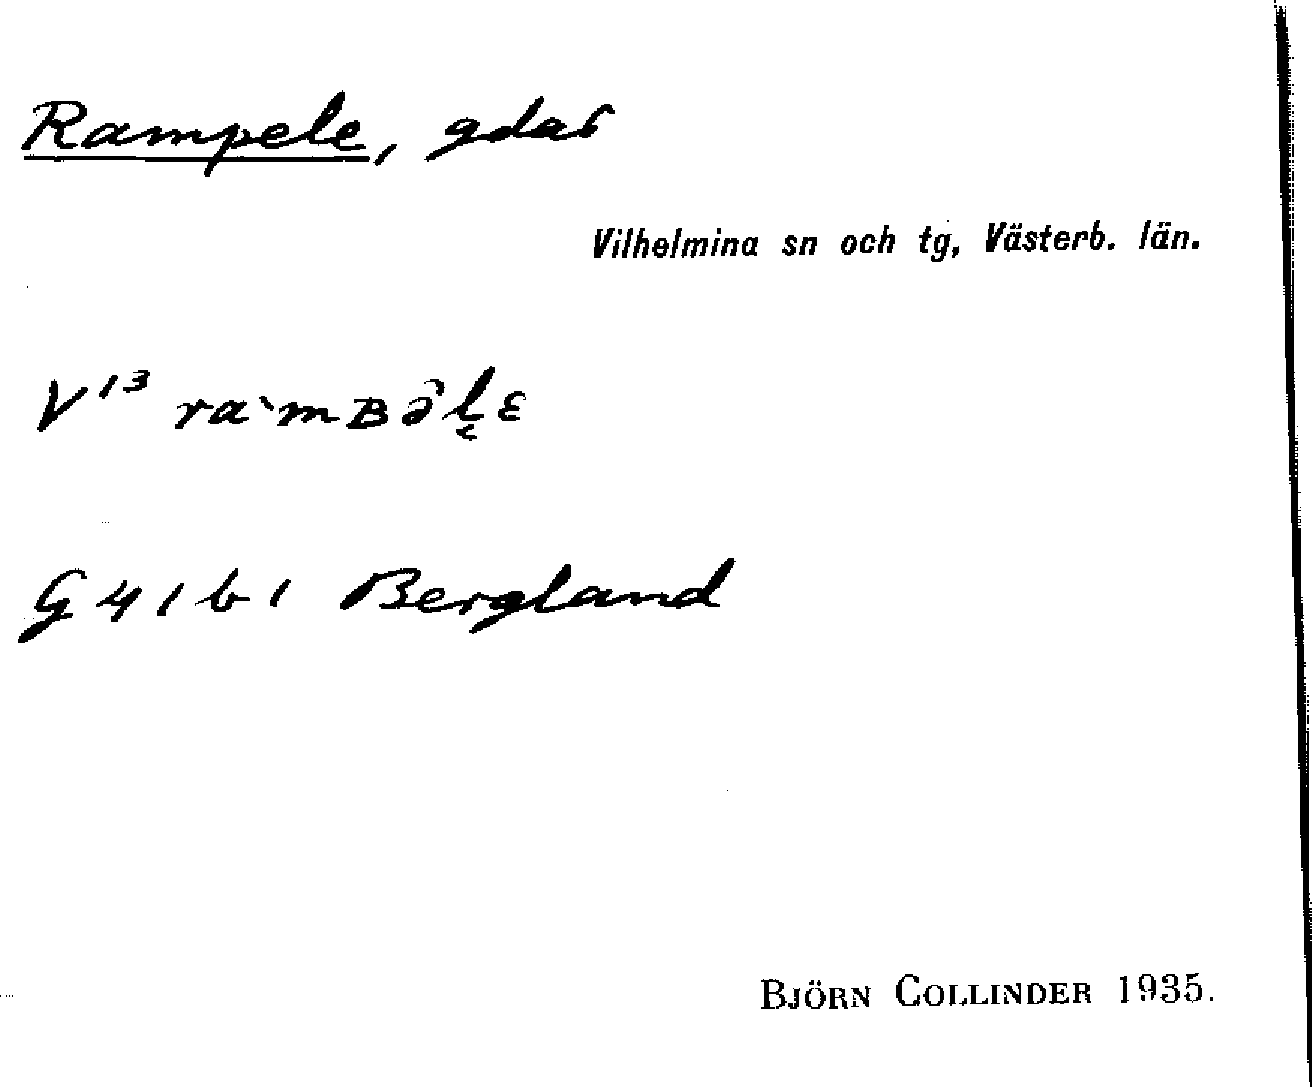 Rampele, gdar
Vilhelmina sn och tg, Västerb. län.
V¹³ ra`mʙə̂l̬ɛ
G 41 b 1 Bergland
BJÖRN COLLINDER 1935.